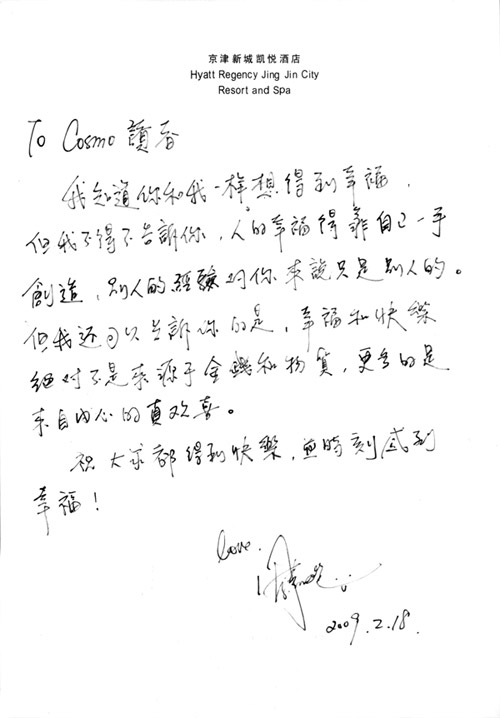 京津新城凯悦酒店
Hyatt Regency Jing Jin City
Resort and Spa
To Cosmo 讀者
我知道你和我一样想得到幸福,
但我不得不告訴你,人的幸福得靠自己一手
創造,别人的經驗对你来說只是别人的。
但我还可以告訴你的是,幸福和快樂
绝对不是来源于金錢和物質,更多的是
来自内心的真欢喜。
祝大家都得到快樂,並時刻感到
幸福!
love.
2009.2.18.